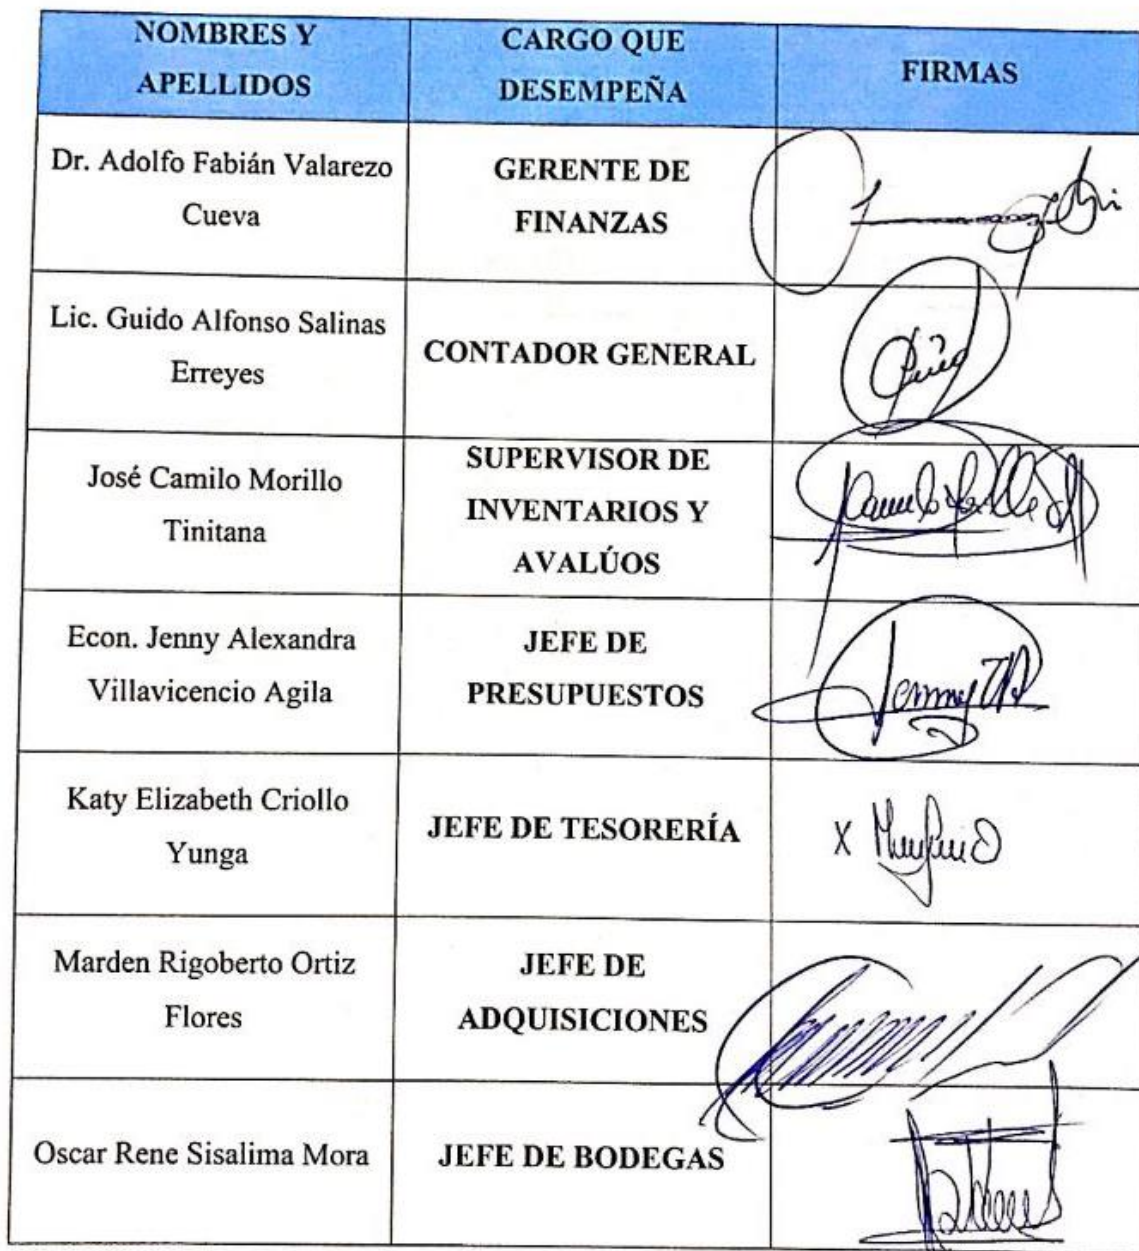 NOMBRES Y
APELLIDOS
CARGO QUE
DESEMPEÑA
FIRMAS
Dr. Adolfo Fabián Valarezo
Cueva
GERENTE DE
FINANZAS
Lic. Guido Alfonso Salinas
Erreyes
CONTADOR GENERAL
José Camilo Morillo
Tinitana
SUPERVISOR DE
INVENTARIOS Y
AVALÚOS
Econ. Jenny Alexandra
Villavicencio Agila
JEFE DE
PRESUPUESTOS
Jenny
Katy Elizabeth Criollo
Yunga
JEFE DE TESORERÍA
X
Marden Rigoberto Ortiz
Flores
JEFE DE
ADQUISICIONES
Oscar Rene Sisalima Mora
JEFE DE BODEGAS